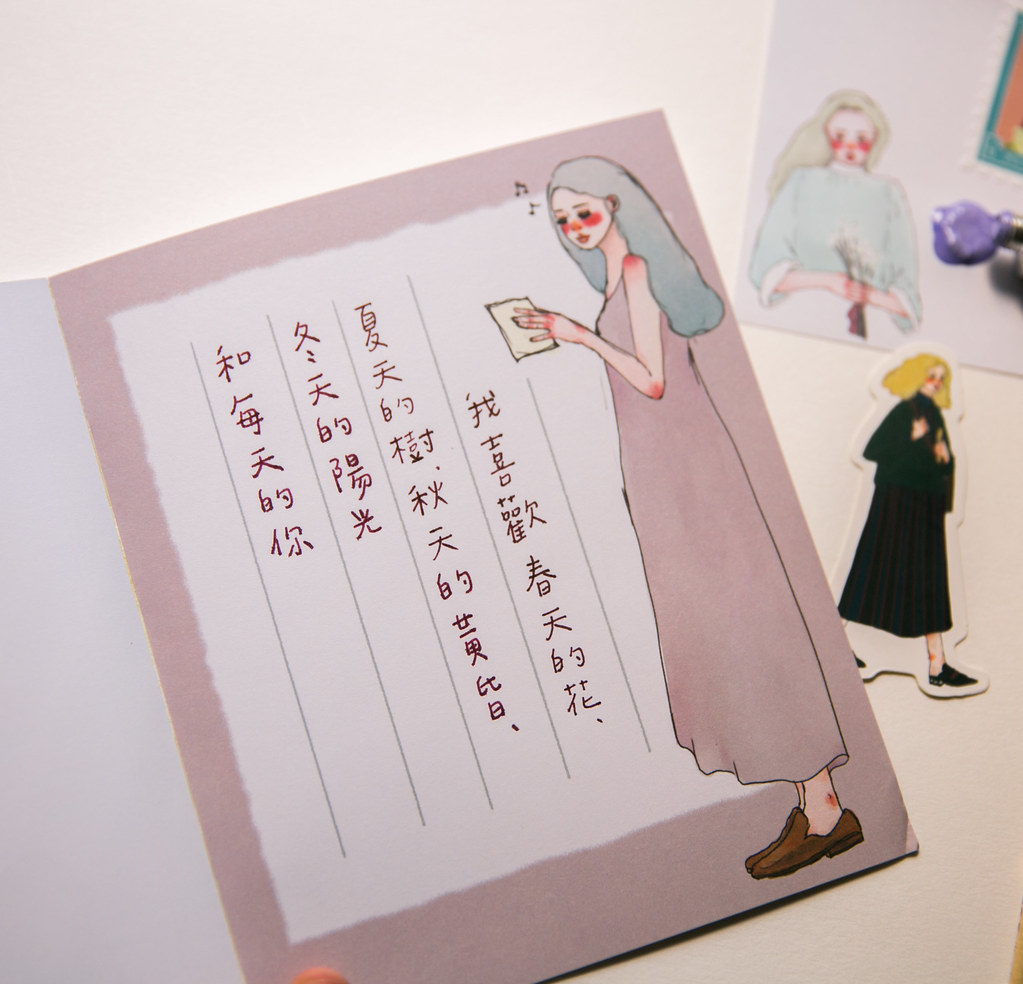 我喜歡春天的花、
夏天的樹、秋天的黃昏、
冬天的陽光
和每天的你